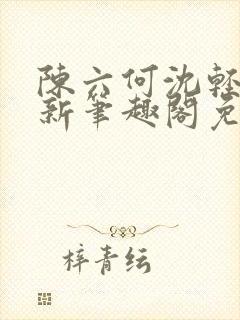 陳六何沈輕
新筆趣閣免
梓青纭